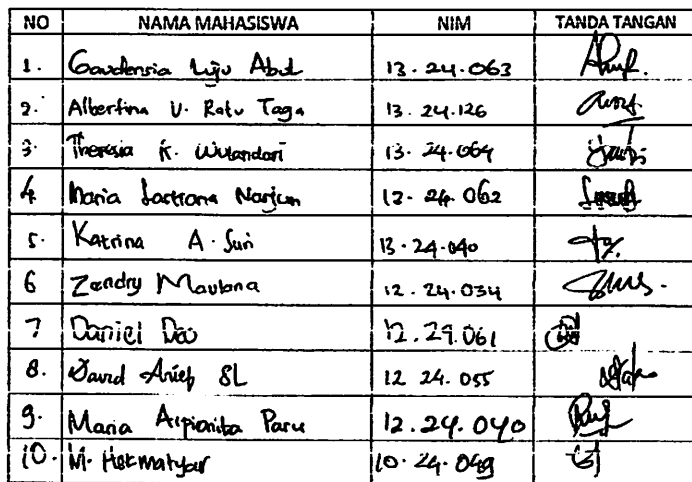 NO NAMA MAHASISWA NIM TANDA TANGAN
1. Gaudensia Abul 13.24.063
2. Albertina V. Ratu Taga 13.24.126
3. Theresia K. Wulandari 13.24.064
4. Maria 12.24.062
5. Katrina A. Suri 13.24.040
6 Zendry Maulana 12.24.034
7 Daniel 12.24.061
8. David Arief SL 12 24.055
9. Maria Paru 12.24.040
10. M. Hekmatyar 10.24.049